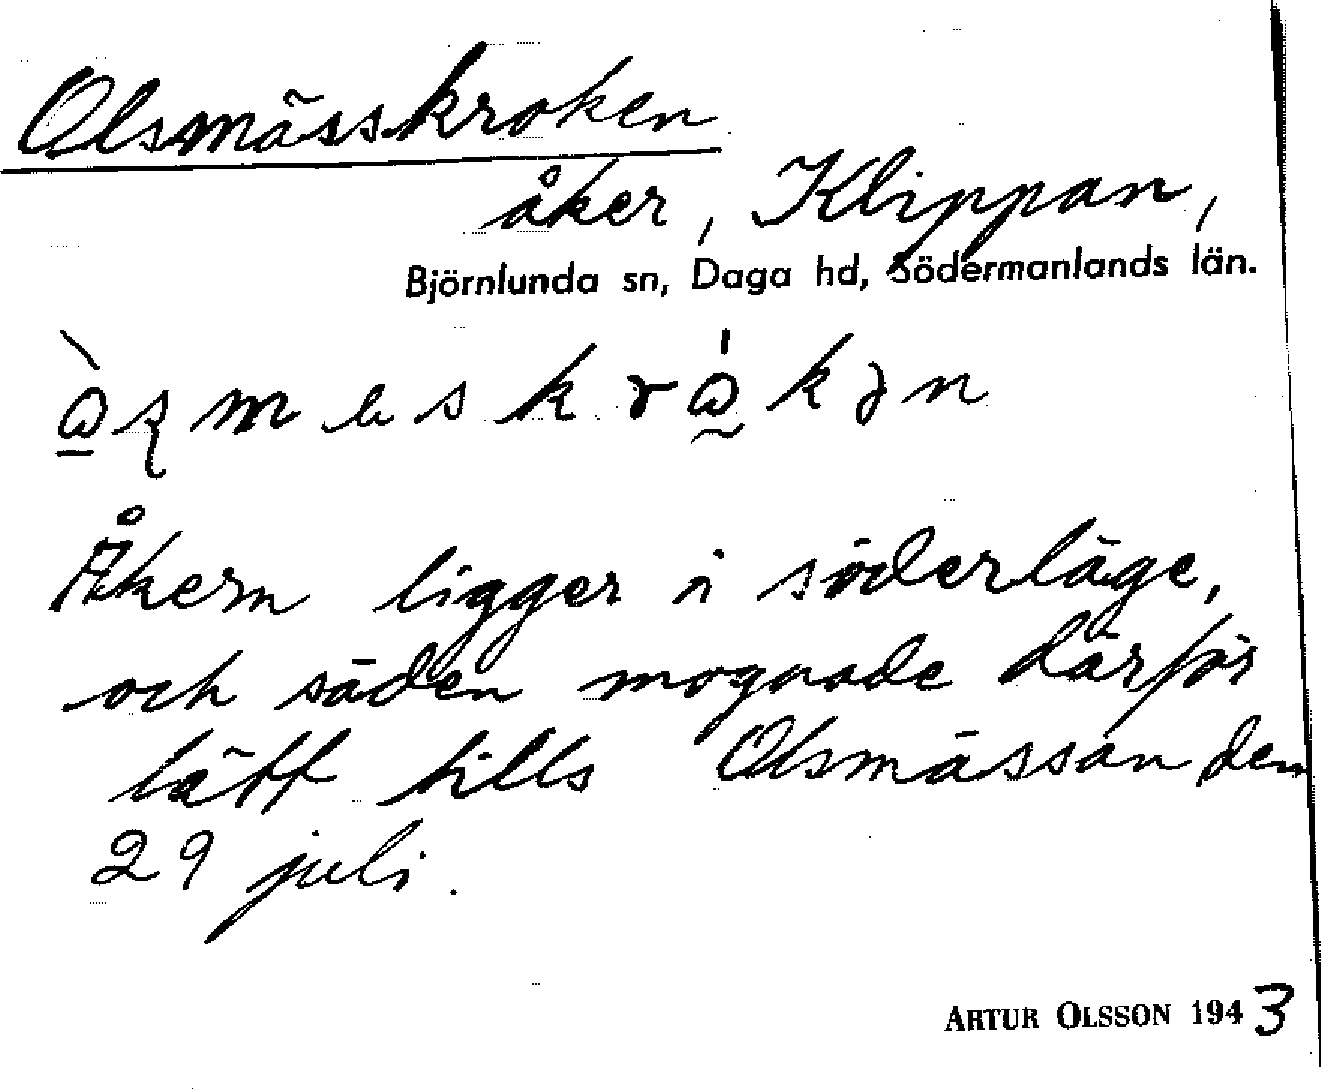 Olsmässkroken
åker, Klippan,
Björnlunda sn, Daga hd, Södermanlands län.
Åkern ligger i söderläge,
och säden mognade därför
lätt tills Olsmässan den
29 juli.
ARTUR OLSSON 1943